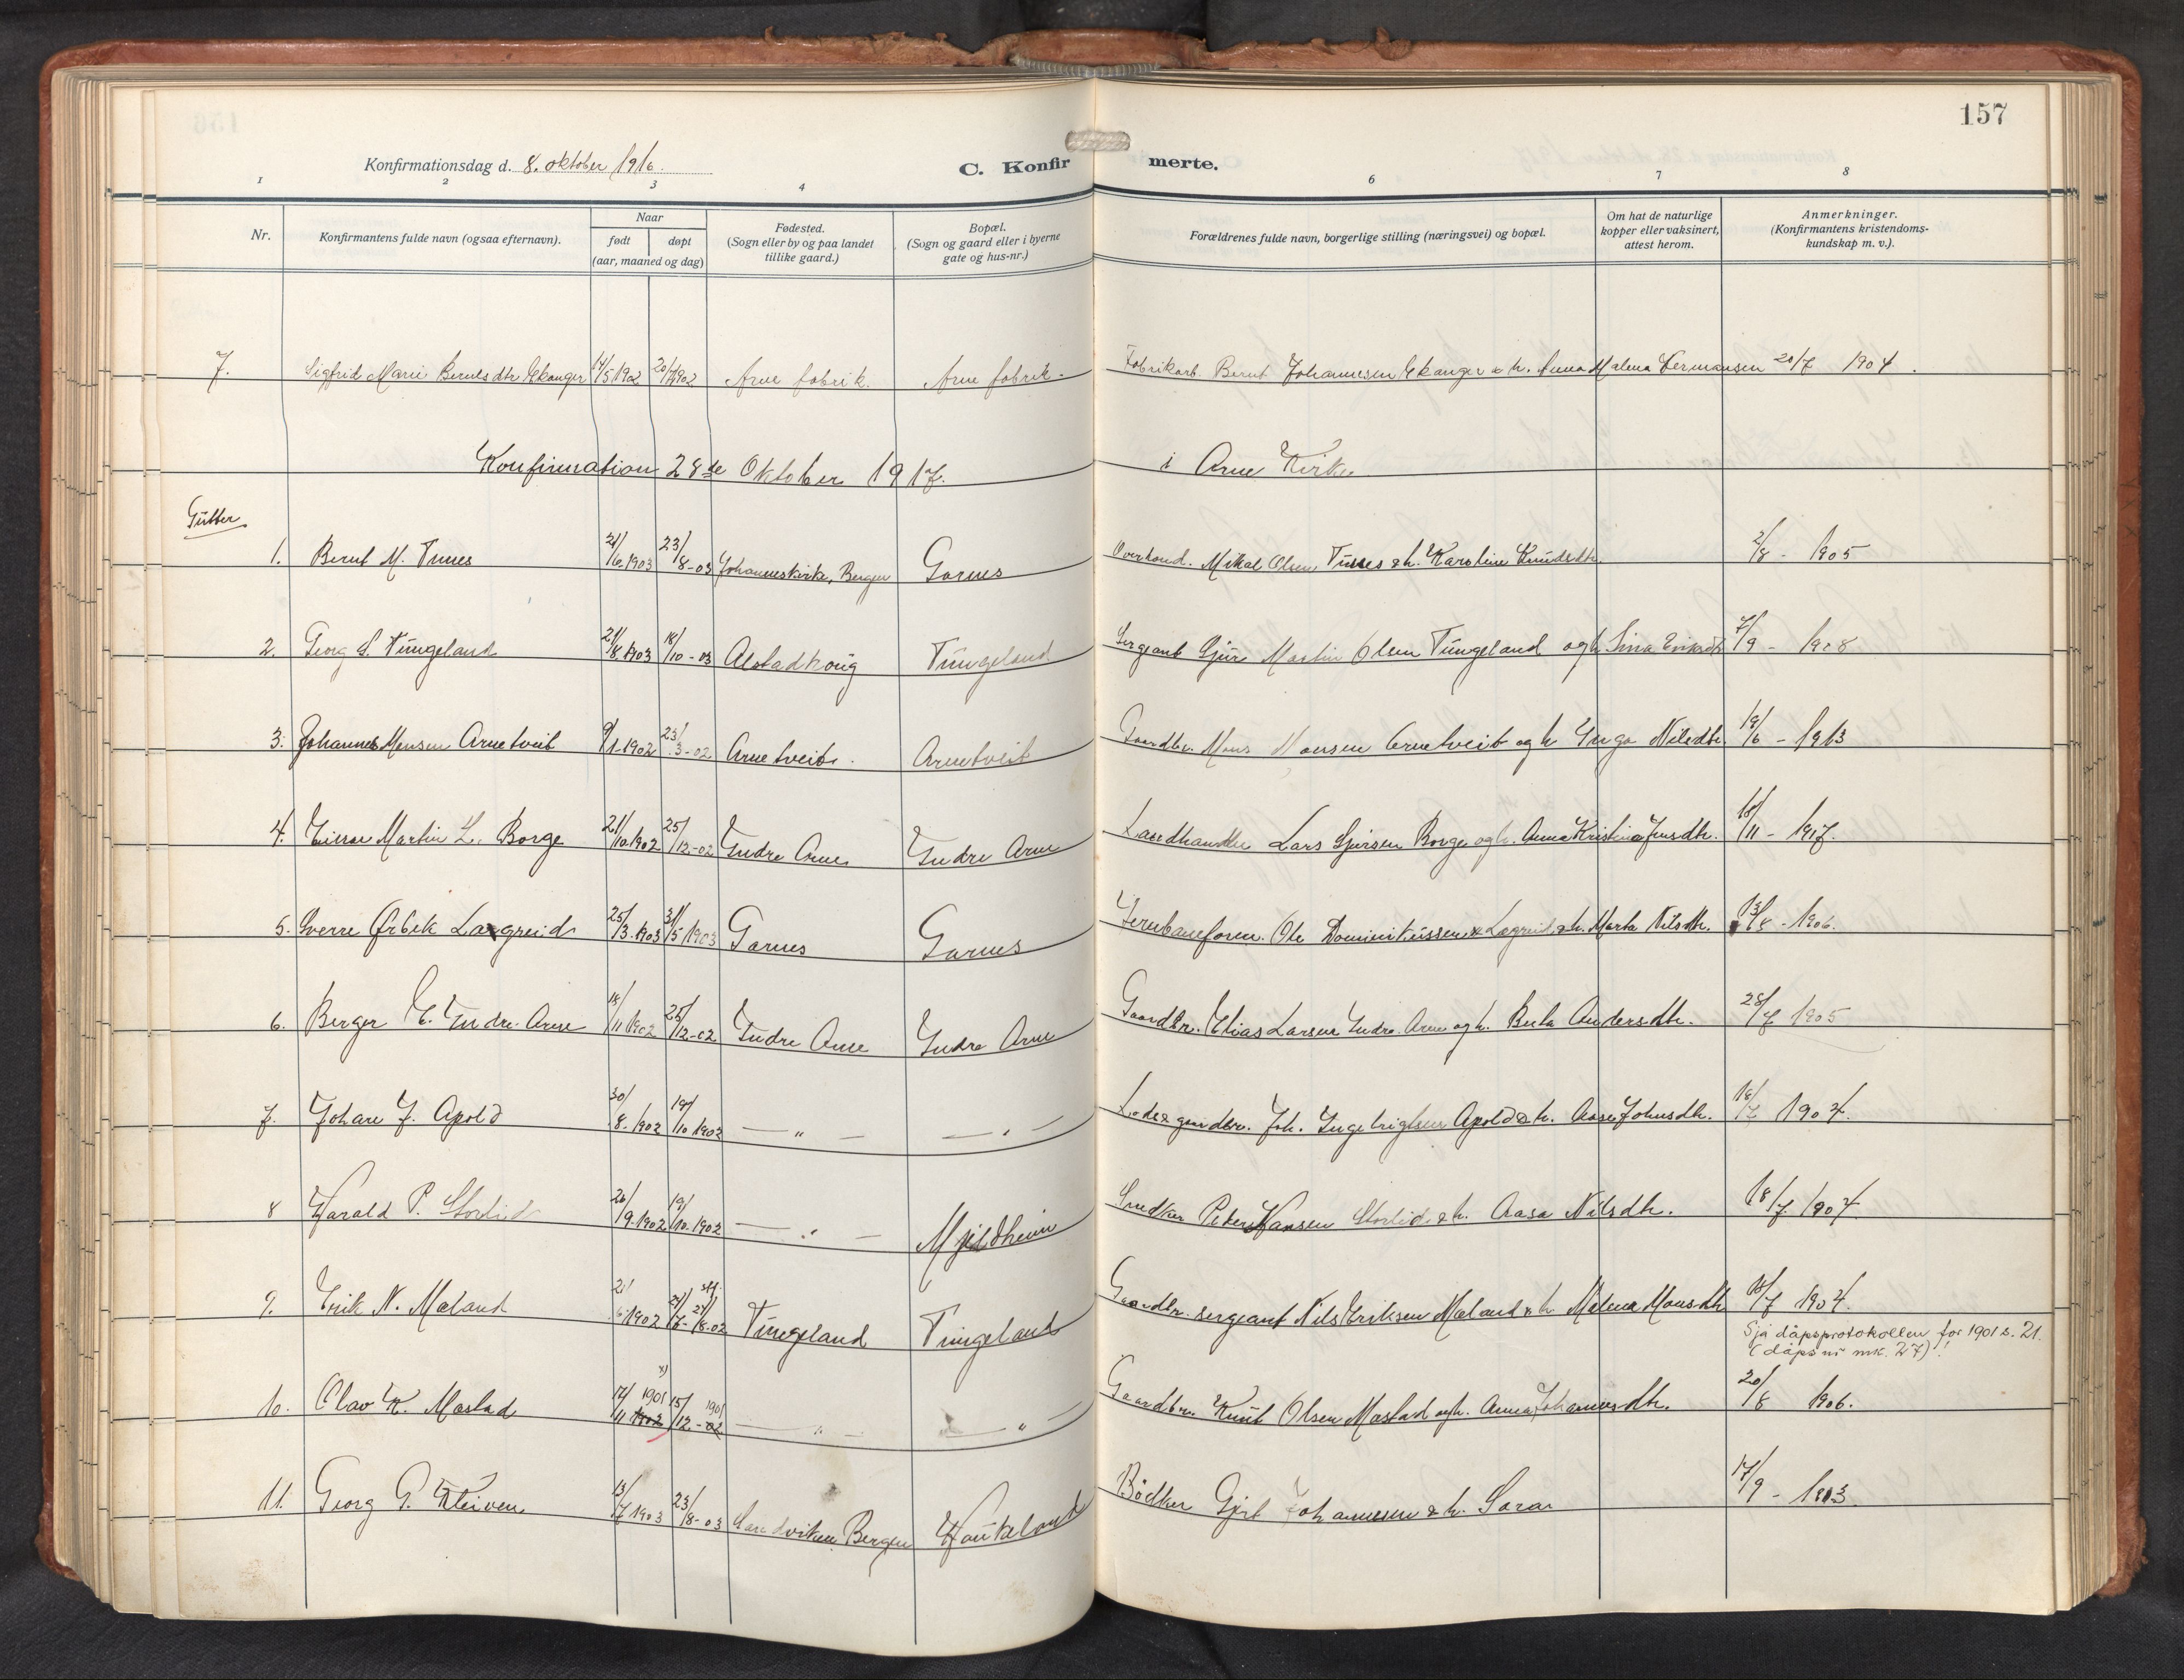 157
Konfirmationsdag d. 8. oktober 1916.
C. Konfirmerte.
1 2 3 4 6 7 8
Nr.
Konfirmantens fulde navn (ogsaa efternavn).
Naar
født døpt
(aar, maaned og dag)
Fødested.
(Sogn eller by og paa landet
tillike gaard.)
Bopæl.
(Sogn og gaard eller i byerne
gate og hus-nr.)
Forældrenes fulde navn, borgerlige stilling (næringsvei) og bopæl.
Om hat de naturlige
kopper eller vaksinert,
attest herom.
Anmerkninger.
(Konfirmantens kristendoms-
kundskap m. v.).
7. Sigfrid Marie Berntsdtr Ekanger 14/5 1902 20/7 1902 Arne fabrik. Arne fabrik. Fabrikarb. Bernt Johannesen Ekanger & h. Anna Malena Hermansen 20/7 1904.
Konfirmation 28de Oktober 1917. i Arne Kirke
Gutter
1. Bernt M. Tunes 21/6 1903 23/8-03 Johanneskirke, Bergen Garnes Mikal Olsen Tunes & h. Karoline Knudsdtr. 2/8 - 1905
2. Georg S. Tungeland 21/8 1903 18/10-03 Alstadhoug Tungeland Sergeant Sjur Martin Olsen Tungeland og h. Sina 7/9 - 1908
3. Johannes Monsen Arnetveit 9/1-1902 23/3-02 Arnetveit. Arnetveit Gaardbr. Mons Monsen Arnetveit og h. Inga Nilsdtr. 19/6 - 1913
4. Einar Martin L. Borge 21/10 1902 25/12-02 Indre Arne Indre Arne Landhandler Lars Sjursen Borge og h. Anna Kristina Jensdtr. 10/11 - 1917.
5. Sverre Ørbek Lægreid 25/3 1903 31/5 1903 Garnes Garnes Jernbaneform. Ole Dominikussen Lægreid & h. Marta Nilsdtr. 13/8 - 1906.
6. Berger E. Indre Arne 18/11 1902 25/12-02 Indre Arne Indre Arne Gaardbr. Elias Larsen Indre Arne og h. Berta Andersdtr. 28/7 1905
7. Johan J. Apold 30/8. 1902 19/10 1902 — " — — " — Joh. Ingebrigtsen Apold & h. Aase Johnsdtr. 18/7 1904.
8 Harald P. Storlid 20/9-1902 19/10-1902 — " — Mjeldheim Snedker Peter Hansen Storlid & h. Aasa Nilsdtr. 18/7. 1904.
9. Erik N. Møland 2/6-1902 24/8-02 Tungeland Tungeland Gaardbr. sergeant Nils Eriksen Møland & h. Malena Monsdtr. 18/7 1904.
Sjå dåpsprotokollen for 1901 s. 21.
(dåps nr mrk. 27)!
10. Olav K. Mostad 17/11 1902 x) 1901 15/12-02 1901 — " — — " — Gaardbr. Knut Olsen Mostad og h. Anna Johannesdtr. 20/8 1906.
11. Georg G. Kleiven 13/7 1903 23/8-03 Sandviken Bergen Haukeland Bödker Gjert Johannesen & h. Sara 17/9 - 1903.